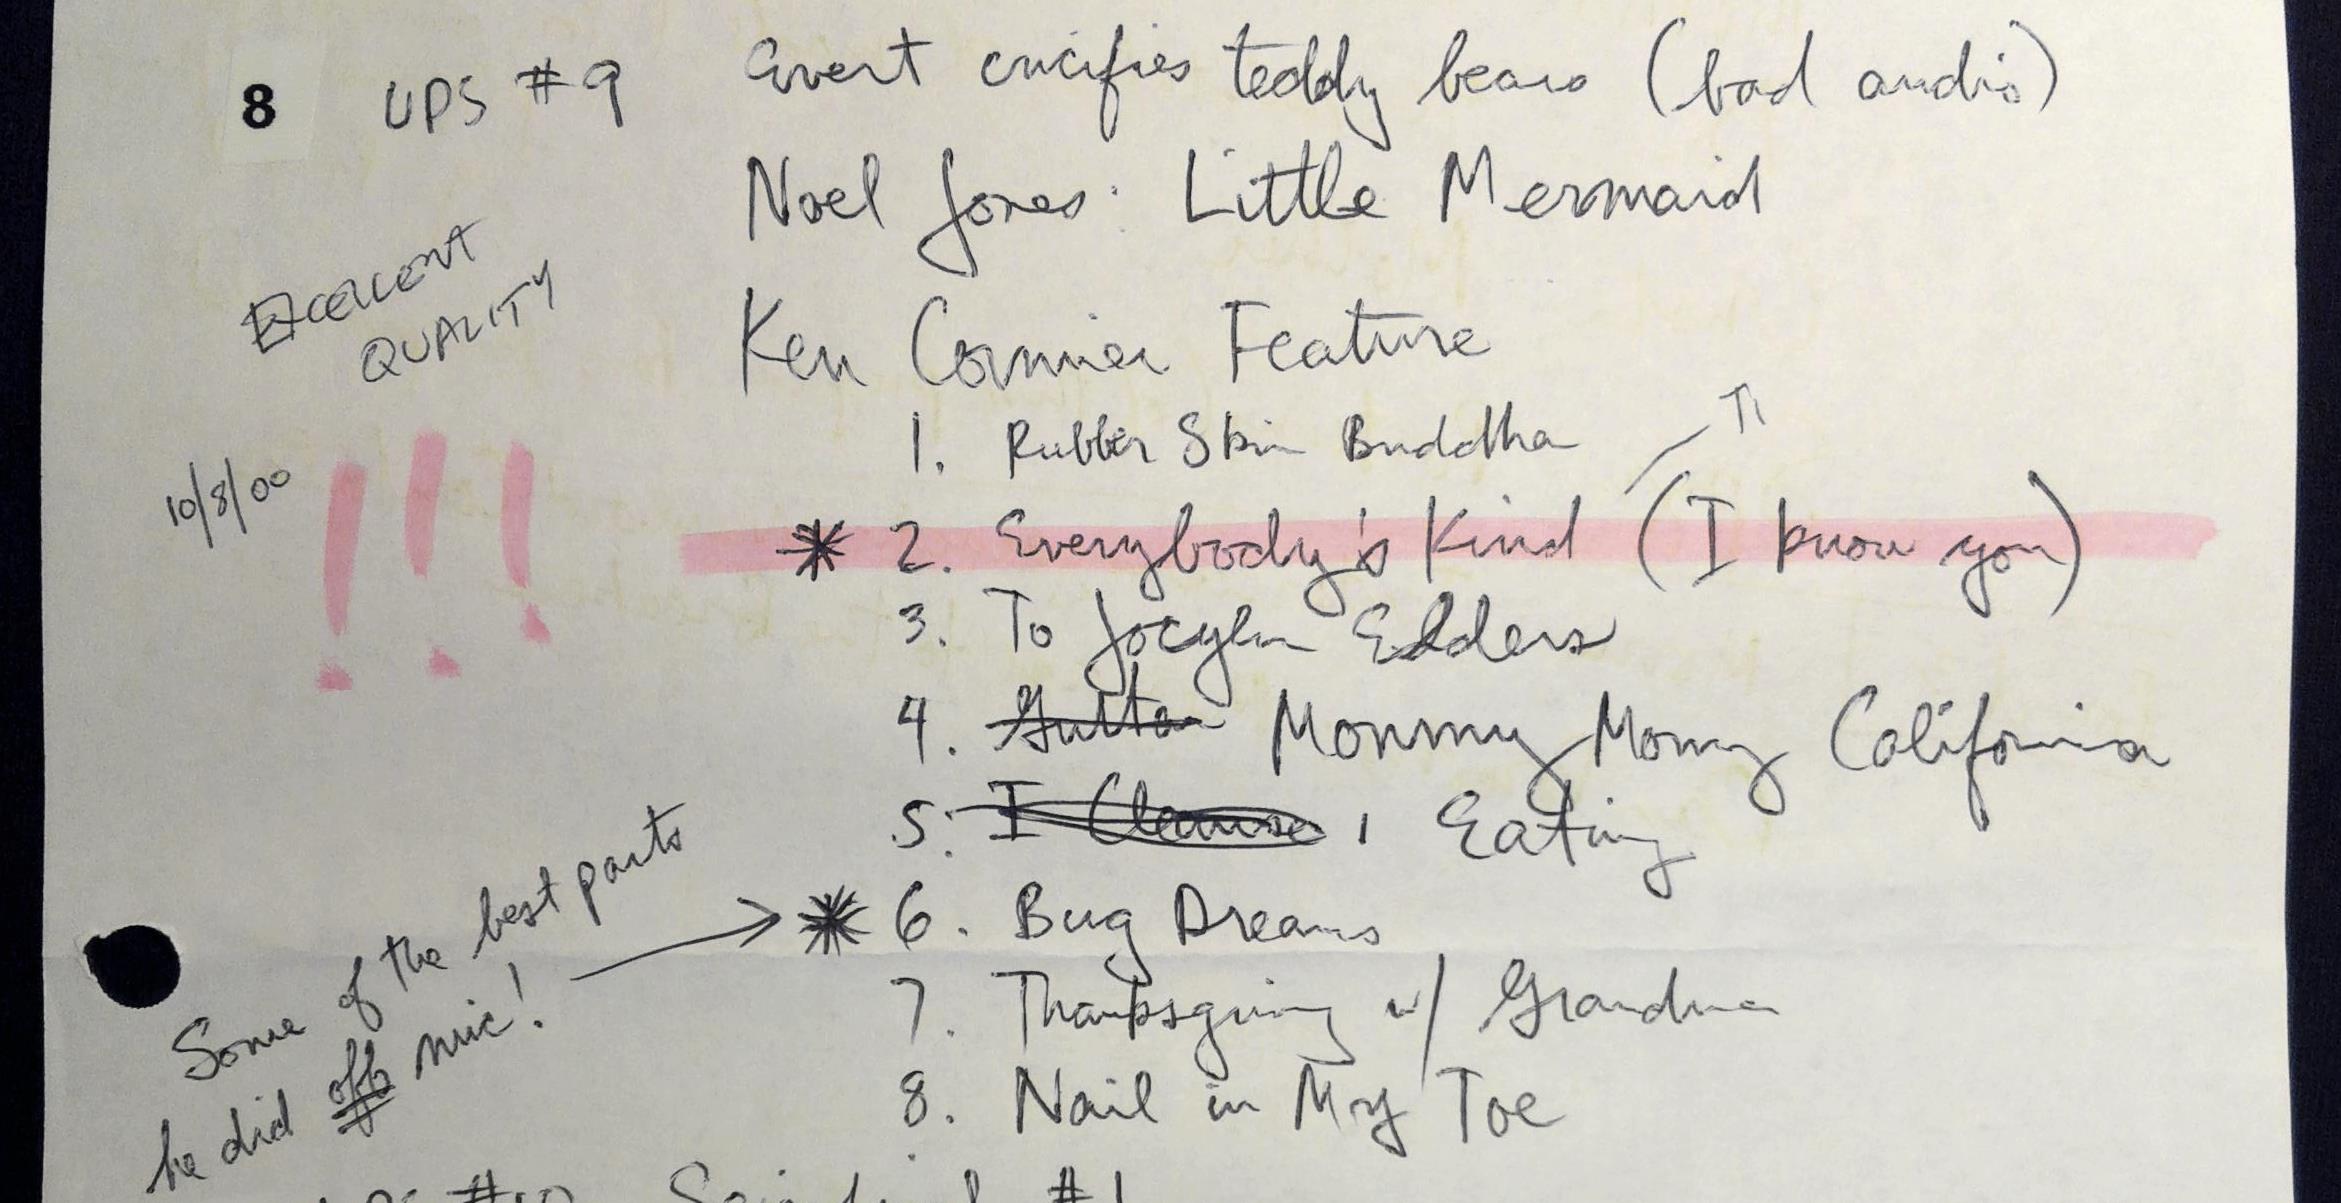 8 UPS #9 Evert crucifies teddy bears (bad audio)
Noel Jones: Little Mermaid
EXCELLENT
QUALITY
Ken Cormier Feature
1. Rubber Skin Buddha
10/8/00 !!!
* 2. Everybody's Kind (I know you)
3. To Jocyln Edders
4. Mommy Momy California
5. Eating
Some of the best parts
he did off mic! → * 6. Bug Dreams
7. Thanksgiving w/ Grandma
8. Nail in My Toe
#10 #1